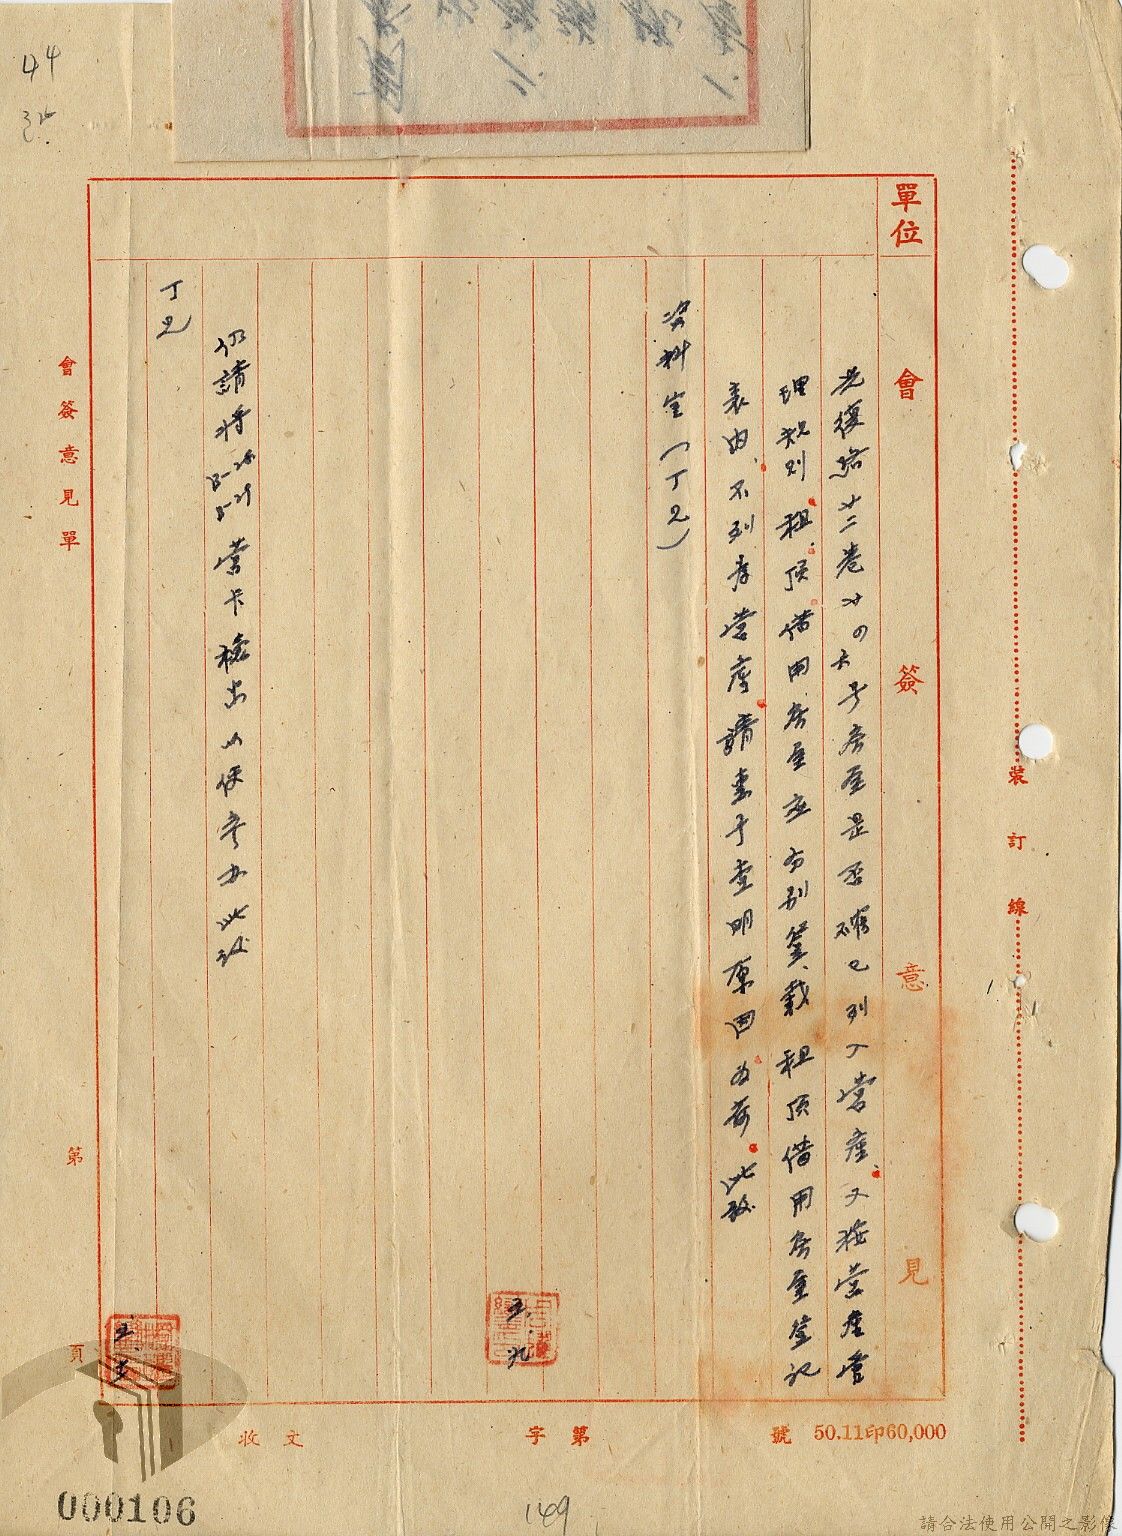 單位
會簽意見
光復路廿二巷廿の六号房屋是否確已列入營產、又按營產管
理規則、租、頂、借用房屋应分別簽、載租頂借用房屋登記
表內、不列為營產、請惠予查明原因为荷、此致
資料室(丁兄)
五.九.
仍請將B-28
B-29營卡檢出以便參办此致
丁兄
五.
會簽意見單
第 頁
裝訂線
收文 字第 號
50.11印60,000
44
000106
149
請合法使用公開之影像